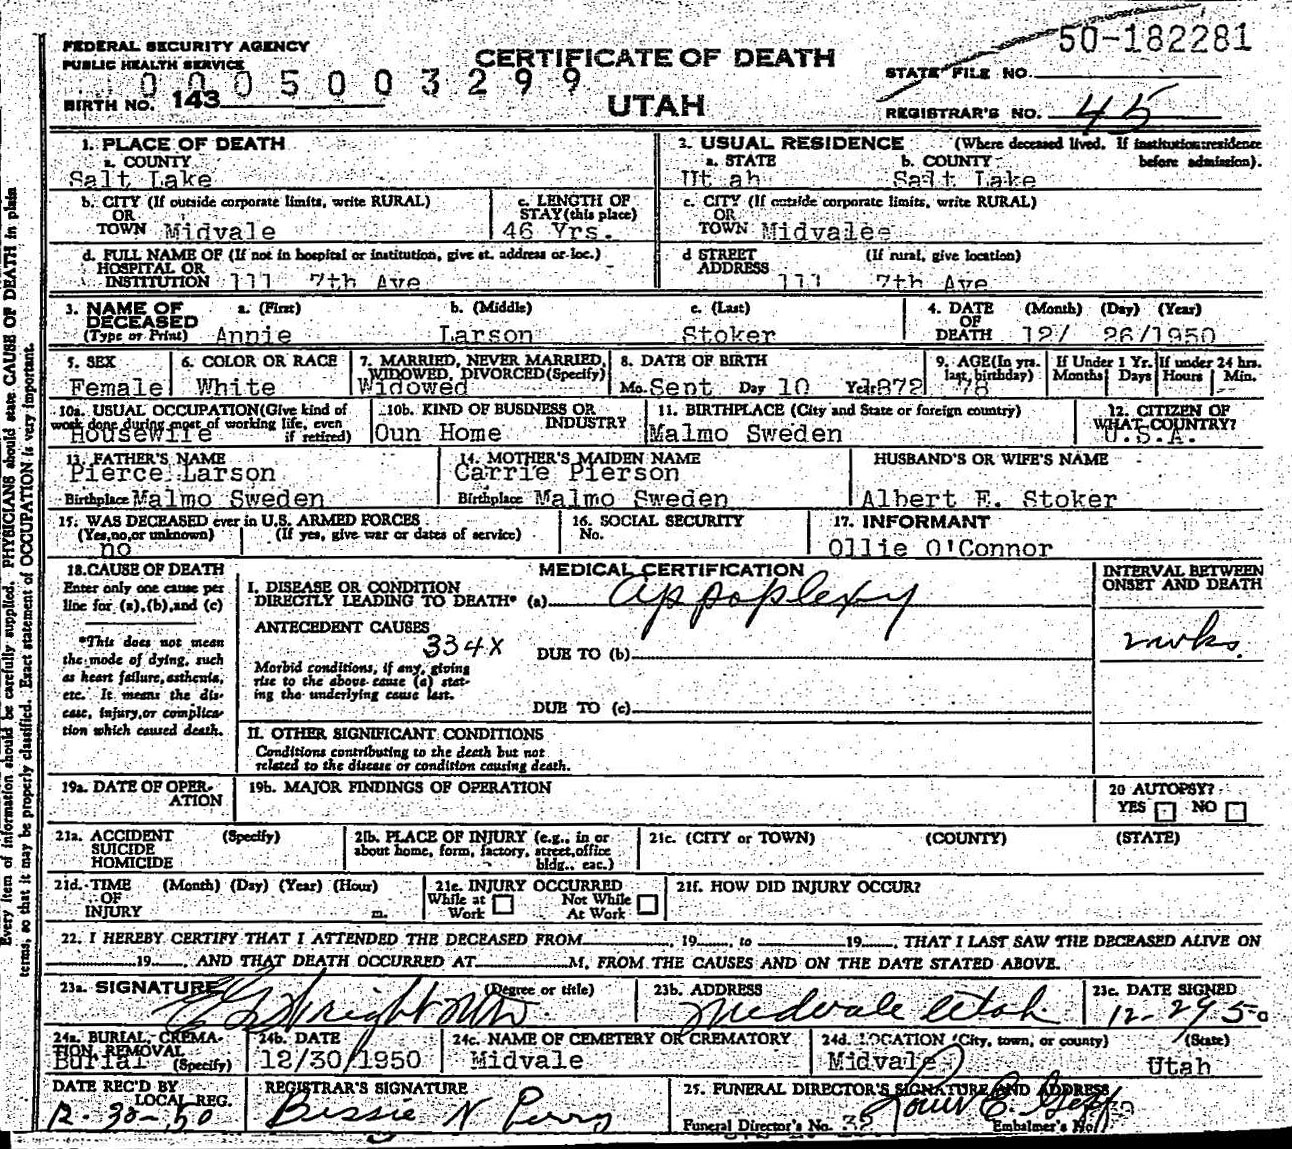 FEDERAL SECURITY AGENCY
PUBLIC HEALTH SERVICE
CERTIFICATE OF DEATH
50-182281
STATE FILE NO.
0005003299
BIRTH NO. 143
UTAH
REGISTRAR'S NO. 45
1. PLACE OF DEATH
a. COUNTY
Salt Lake
2. USUAL RESIDENCE (Where deceased lived. If institution: residence before admission).
a. STATE b. COUNTY
Utah Salt Lake
b. CITY (If outside corporate limits, write RURAL)
OR
TOWN Midvale
c. LENGTH OF
STAY (this place)
46 Yrs.
c. CITY (If outside corporate limits, write RURAL)
OR
TOWN Midvalee
d. FULL NAME OF (If not in hospital or institution, give st. address or loc.)
HOSPITAL OR
INSTITUTION 111 7th Ave
d STREET (If rural, give location)
ADDRESS 111 7th Ave
3. NAME OF DECEASED
(Type or Print)
a. (First) b. (Middle) c. (Last)
Annie Larson Stoker
4. DATE OF DEATH (Month) (Day) (Year)
12/ 26/1950
5. SEX
Female
6. COLOR OR RACE
White
7. MARRIED, NEVER MARRIED,
WIDOWED, DIVORCED (Specify)
Widowed
8. DATE OF BIRTH
Mo. Sept Day 10 Year 1872
9. AGE (In yrs.
last birthday)
78
If Under 1 Yr.
Months Days
If under 24 hrs.
Hours Min.
10a. USUAL OCCUPATION (Give kind of
work done during most of working life, even
if retired)
Housewife
10b. KIND OF BUSINESS OR
INDUSTRY
Oun Home
11. BIRTHPLACE (City and State or foreign country)
Malmo Sweden
12. CITIZEN OF
WHAT COUNTRY?
U.S.A.
13. FATHER'S NAME
Pierce Larson
Birthplace Malmo Sweden
14. MOTHER'S MAIDEN NAME
Carrie Pierson
Birthplace Malmo Sweden
HUSBAND'S OR WIFE'S NAME
Albert E. Stoker
15. WAS DECEASED ever in U.S. ARMED FORCES
(Yes, no, or unknown) (If yes, give war or dates of service)
no
16. SOCIAL SECURITY
No.
17. INFORMANT
Ollie O'Connor
18. CAUSE OF DEATH
Enter only one cause per
line for (a), (b), and (c)
*This does not mean
the mode of dying, such
as heart failure, asthenia,
etc. It means the dis-
ease, injury, or complica-
tion which caused death.
MEDICAL CERTIFICATION
I. DISEASE OR CONDITION
DIRECTLY LEADING TO DEATH* (a) Appoplexy
ANTECEDENT CAUSES
334X
DUE TO (b)
Morbid conditions, if any, giving
rise to the above cause (a) stat-
ing the underlying cause last.
DUE TO (c)
II. OTHER SIGNIFICANT CONDITIONS
Conditions contributing to the death but not
related to the disease or condition causing death.
INTERVAL BETWEEN
ONSET AND DEATH
wks.
19a. DATE OF OPER-
ATION
19b. MAJOR FINDINGS OF OPERATION
20 AUTOPSY?
YES NO
21a. ACCIDENT (Specify)
SUICIDE
HOMICIDE
21b. PLACE OF INJURY (e.g., in or
about home, form, factory, street, office
bldg., eac.)
21c. (CITY or TOWN) (COUNTY) (STATE)
21d. TIME (Month) (Day) (Year) (Hour)
OF
INJURY m.
21e. INJURY OCCURRED
While at Work Not While At Work
21f. HOW DID INJURY OCCUR?
22. I HEREBY CERTIFY THAT I ATTENDED THE DECEASED FROM , 19 , to 19 , THAT I LAST SAW THE DECEASED ALIVE ON
19 , AND THAT DEATH OCCURRED AT M, FROM THE CAUSES AND ON THE DATE STATED ABOVE.
23a. SIGNATURE (Degree or title)
Wright MD.
23b. ADDRESS
Midvale Utah
23c. DATE SIGNED
12-29 50
24a. BURIAL, CREMA-
TION, REMOVAL
(Specify)
Burial
24b. DATE
12/30/1950
24c. NAME OF CEMETERY OR CREMATORY
Midvale
24d. LOCATION (City, town, or county) (State)
Midvale Utah
DATE REC'D BY
LOCAL REG.
12-30-50
REGISTRAR'S SIGNATURE
Bessie N Perry
25. FUNERAL DIRECTOR'S SIGNATURE AND ADDRESS
Funeral Director's No. 32 Embalmer's No.
Every item of information should be carefully supplied. PHYSICIANS should state CAUSE OF DEATH in plain
terms, so that it may be properly classified. Exact statement of OCCUPATION is very important.